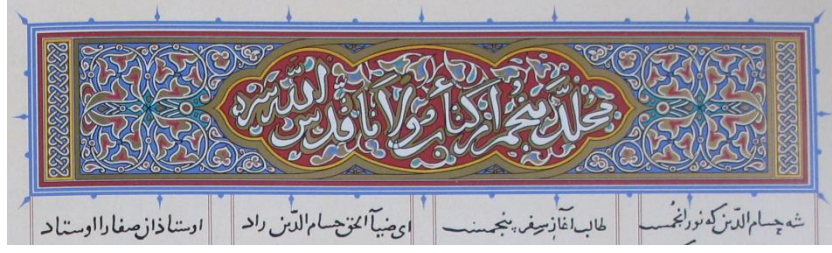 مجلد پنجم از کتاب مولانا قدس الله سره
شه حسام الدّین که نور انجمست طالب آغاز سِفر پنجمست ای ضیاآ الحق حسام الدّین راد اوستادان صفا را اوستاد